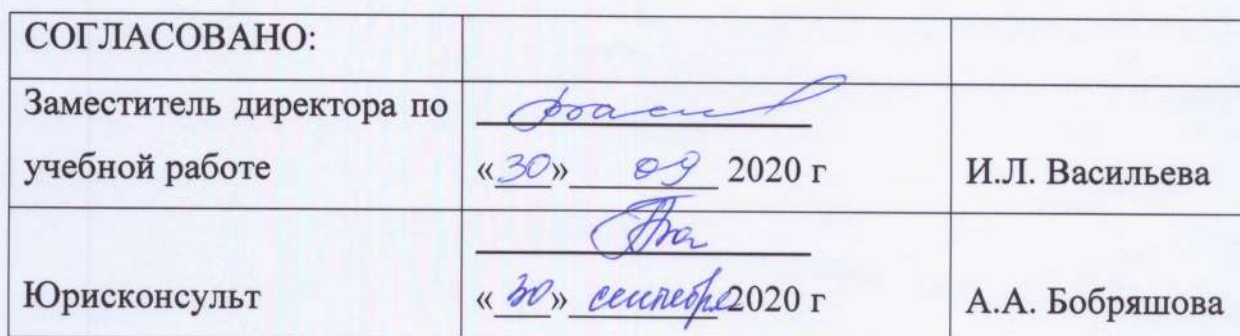 СОГЛАСОВАНО:
Заместитель директора по
учебной работе
«30» 09 2020 г
И.Л. Васильева
Юрисконсульт
«30» сентября 2020 г
А.А. Бобряшова